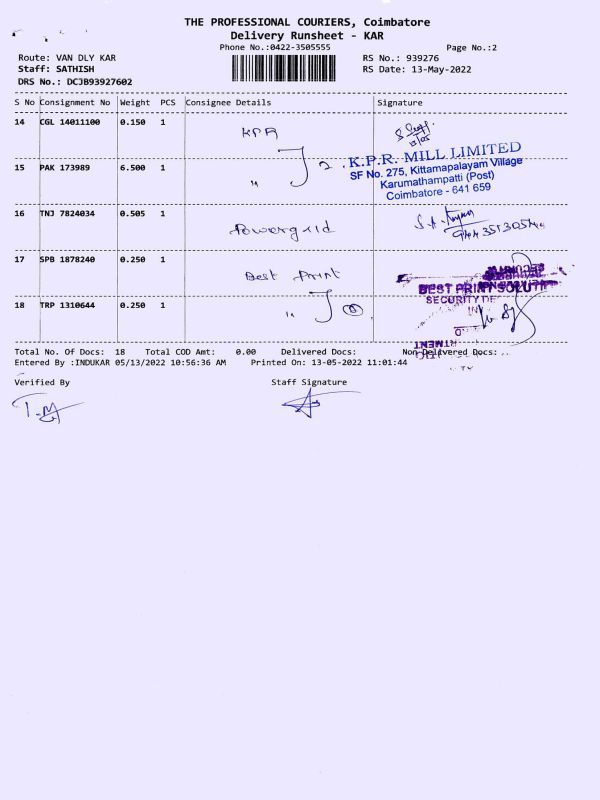 THE PROFESSIONAL COURIERS, Coimbatore
Delivery Runsheet - KAR
Phone No.:0422-3505555
Page No.:2
Route: VAN DLY KAR
RS No.: 939276
Staff: SATHISH
RS Date: 13-May-2022
DRS No.: DCJB93927602
S No Consignment No Weight PCS Consignee Details Signature
14 CGL 14011100 0.150 1 KPR
15 PAK 173989 6.500 1 " 2
K.P.R. MILL LIMITED
SF No. 275, Kittamapalayam Village
Karumathampatti (Post)
Coimbatore - 641 659
16 TNJ 7824034 0.505 1 Powergrid
17 SPB 1878240 0.250 1 Best Print
BEST PRINT SOLUTI
SECURITY DE
18 TRP 1310644 0.250 1 "
Total No. Of Docs: 18 Total COD Amt: 0.00 Delivered Docs: Non-Delivered Docs:
Entered By :INDUKAR 05/13/2022 10:56:36 AM Printed On: 13-05-2022 11:01:44
Verified By Staff Signature